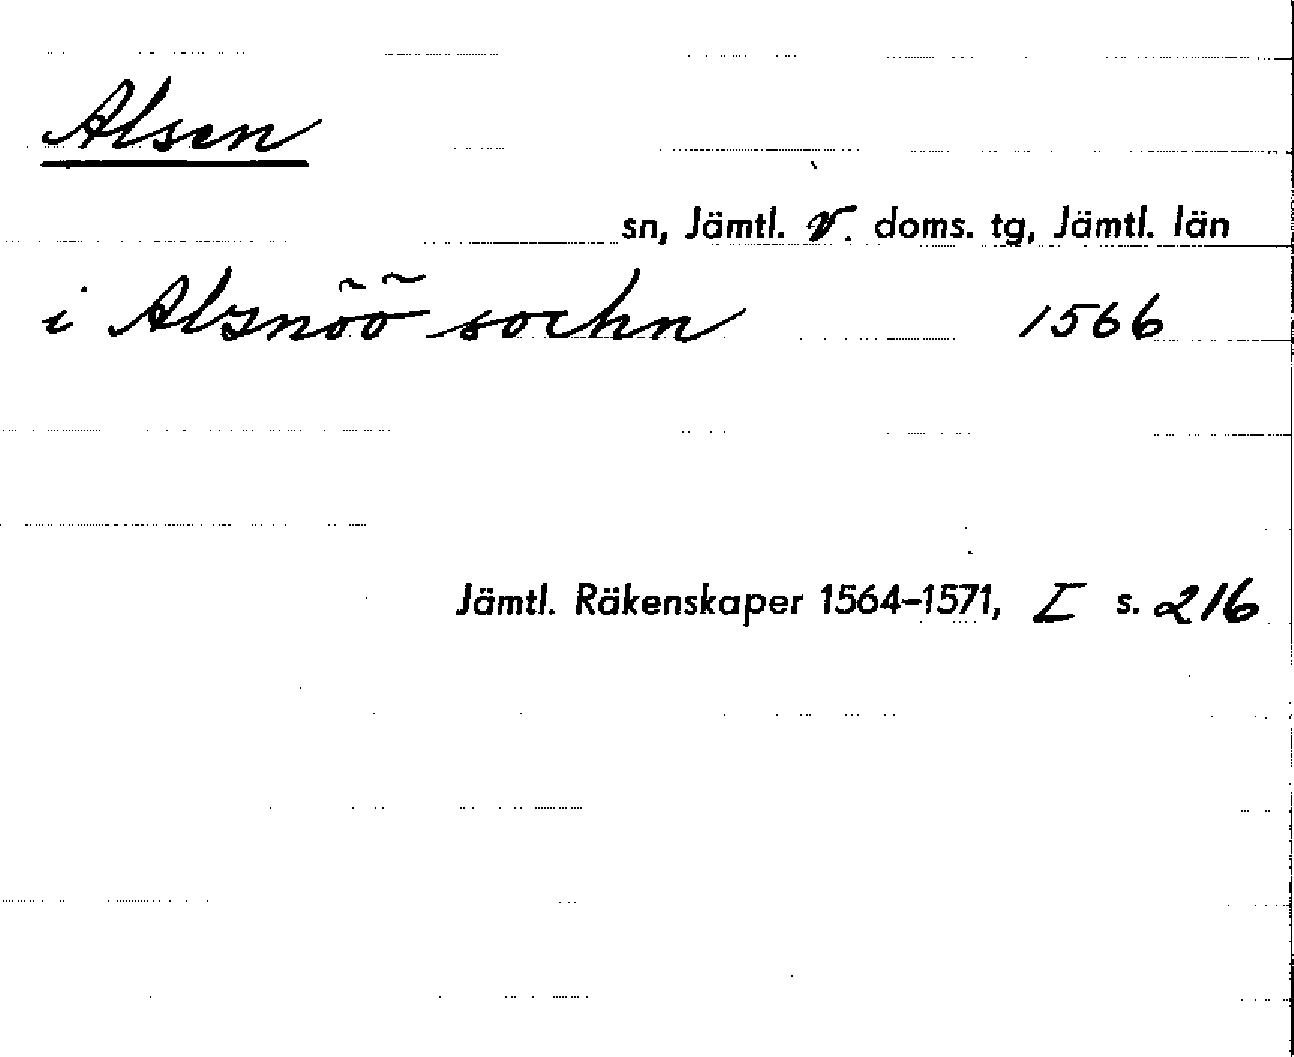 Alsen
sn, Jämtl. v. doms. tg, Jämtl. län
i Alsnöö sochn 1566
Jämtl. Räkenskaper 1564-1571, I s. 216